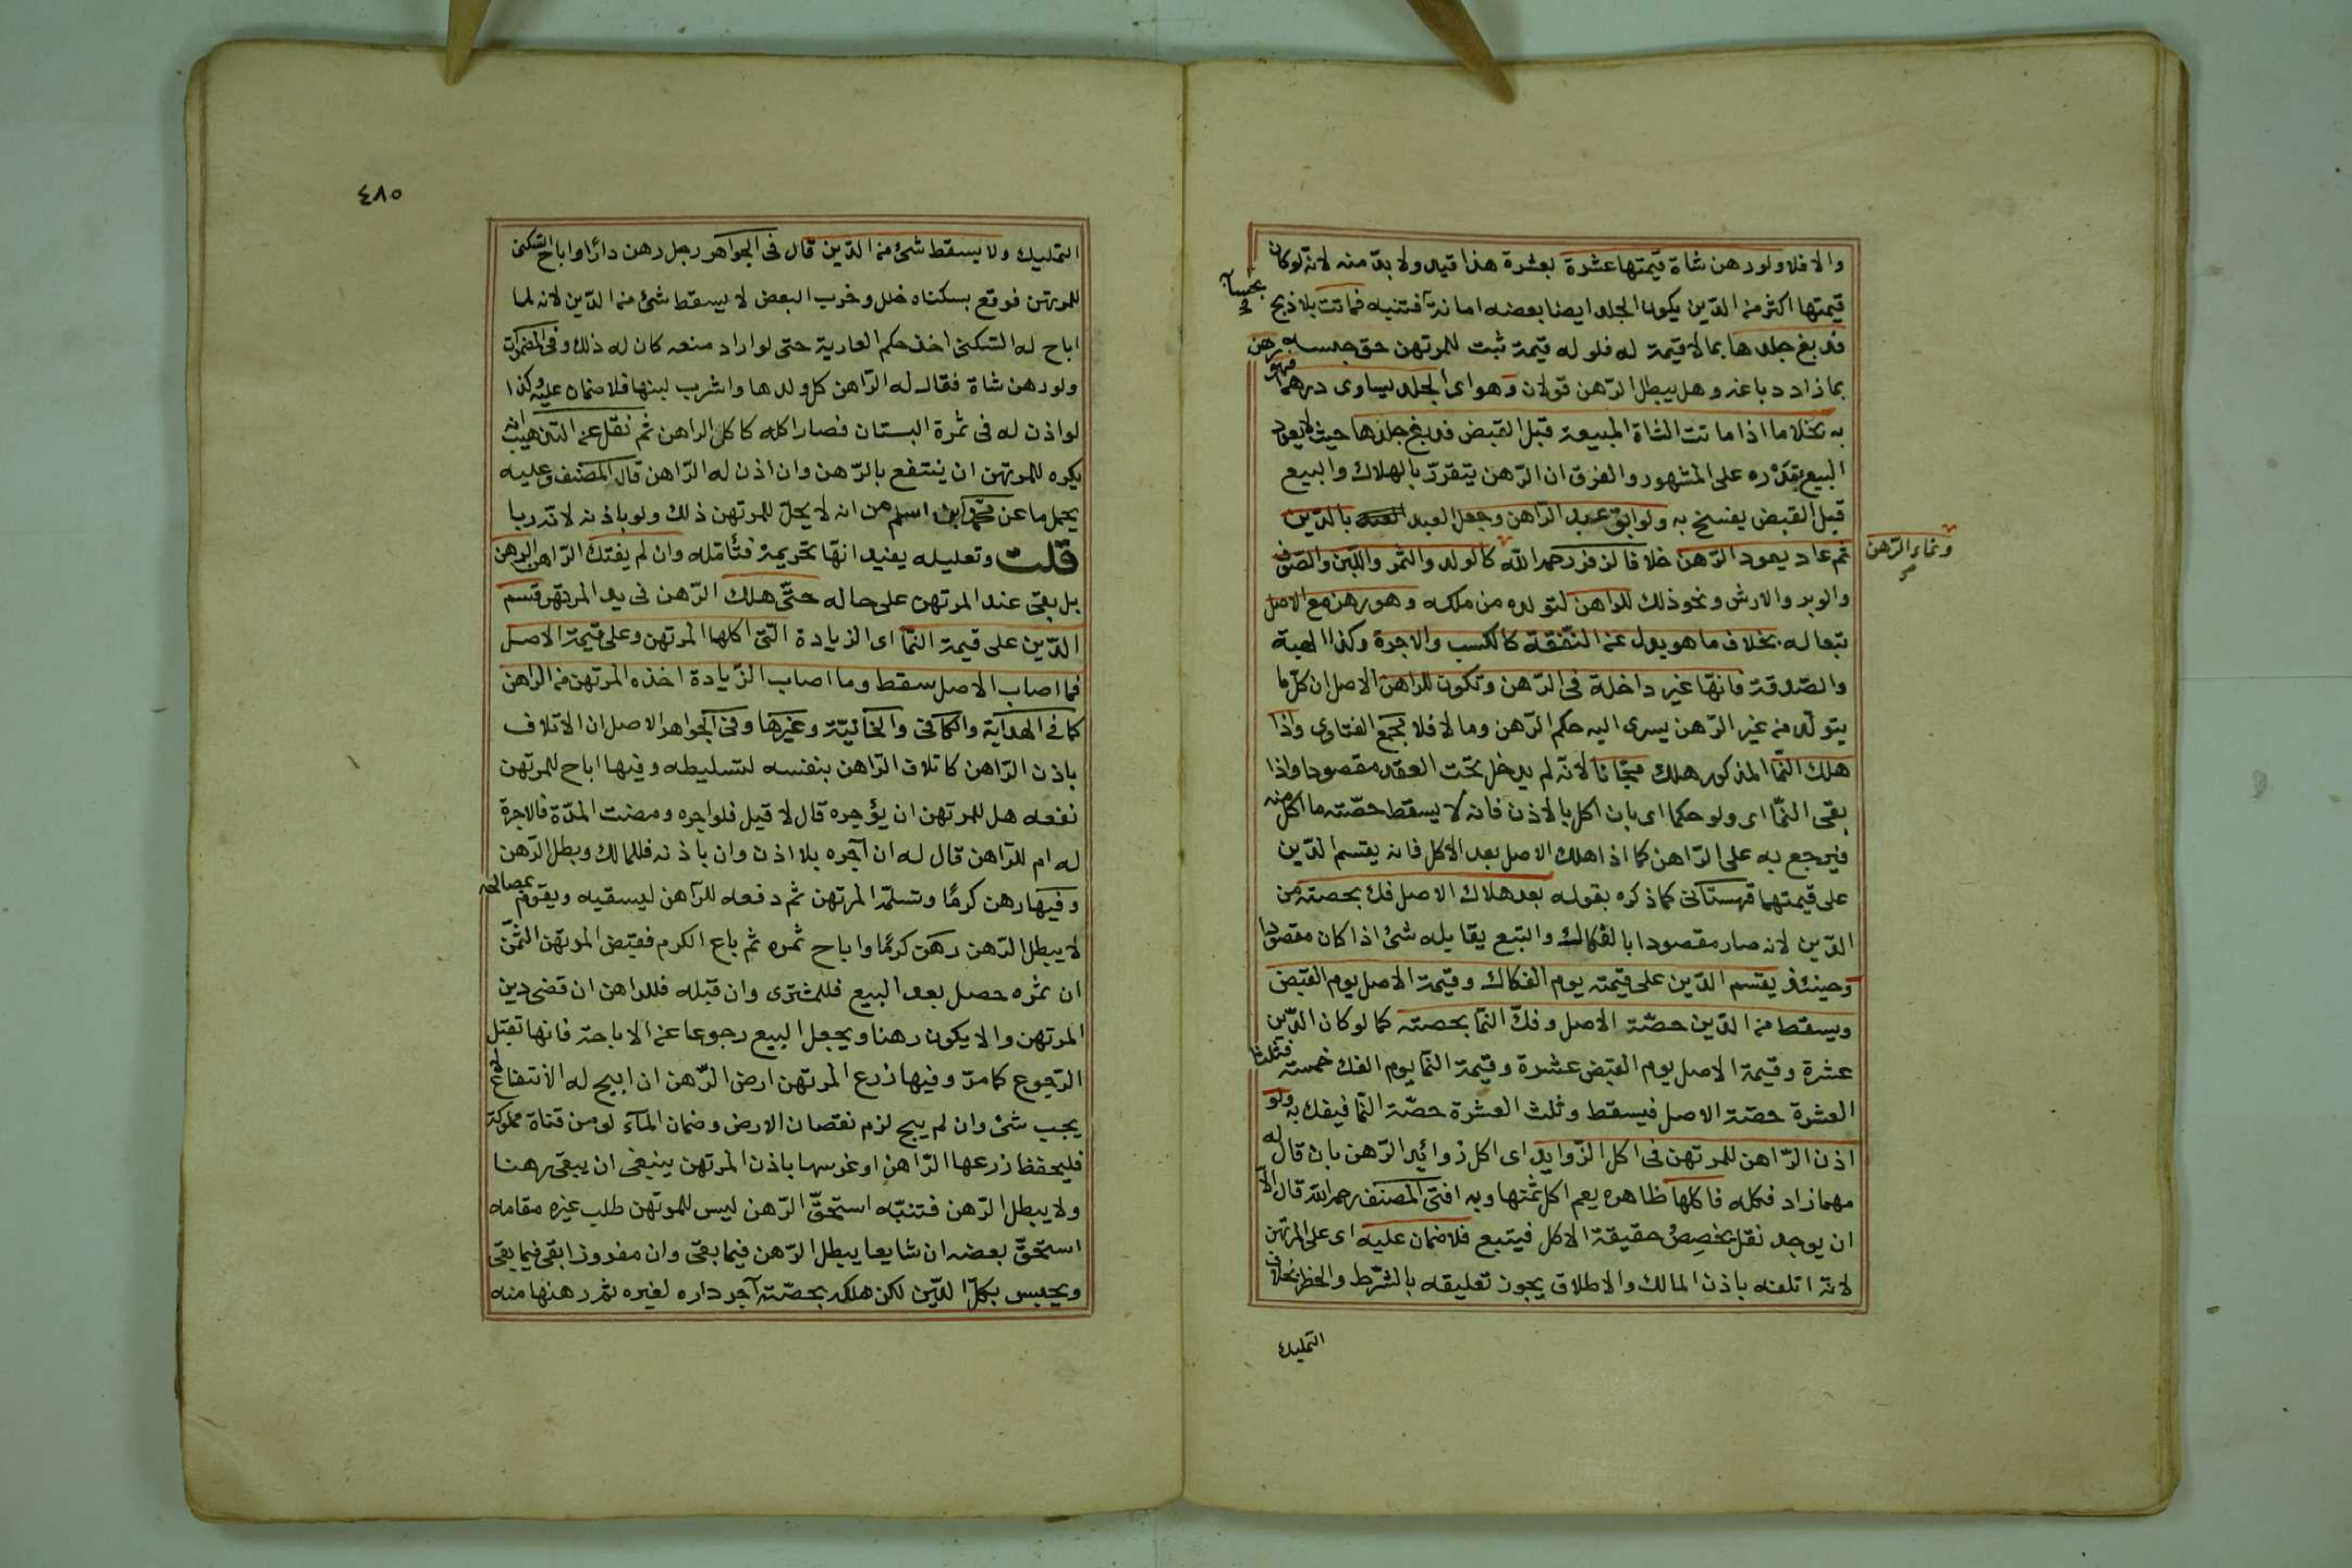 والا فلا ولو رهن شاة قيمتها عشرة بعشرة هذا قيد ولا بدّ منه لانه لو كان
قيمتها اكثر من الدّين يكون الجلد ايضا بعضه امانة بحسابه فتنبه فماتت بلا ذبح
فدبغ جلدها بما لا قيمة له فلو له قيمة ثبت للمرتهن حق حبسه
بما زاد دباغه وهل يبطل الرّهن قولان وهو اى الجلد يساوى درهما فهو رهن
به بخلاف ما اذا ماتت الشاة المبيعة قبل القبض فدبغ جلدها حيث لا يعود
البيع بقدره على المشهور والفرق ان الرّهن يتقرّر بالهلاك والبيع
قبل القبض يفسخ به ولو ابق عبد الرّاهن وجعل العبد بالدّين
ثم عاد يعود الرّهن خلافا لزفر رحمه اللّه ونماء الرّهن كالولد والثمر واللبن والصّوف
والوبر والارش ونحو ذلك للراهن لتولده من ملكه وهو رهن مع الاصل
تبعا له بخلاف ما هو بدل عن النّفقة كالكسب والاجرة وكذا الهبة
والصّدقة فانّها غير داخلة فى الرّهن وتكون للراهن الاصل ان كلّ ما
يتولّد من غير الرّهن يسرى اليه حكم الرّهن وما لا فلا مجمع الفتاوى واذا
هلك النّما المذكور هلك مجّانا لانّه لم يدخل تحت العقد مقصودا واذا
بقى النّما اى ولو حكما اى بان اكل بالاذن فانه لا يسقط حصّته ما اكل منه
فيرجع به على الرّاهن كما اذا هلك الاصل بعد الاكل فانه يقسم الدّين
على قيمتهما قهستانى كما ذكره بقوله بعد هلاك الاصل فك بحصته من
الدّين لانه صار مقصودا بالفكاك والتبع يقابله شئ اذا كان مقصودا
وحينئذ يقسم الدّين على قيمته يوم الفكاك وقيمة الاصل يوم القبض
ويسقط من الدّين حصّة الاصل وفكّ النما بحصته كما لو كان الدّين
عشرة وقيمة الاصل يوم القبض عشرة وقيمة النّما يوم الفك خمسة فثلثا
العشرة حصّة الاصل فيسقط وثلث العشرة حصّة النّما فيفك به ولو
اذن الرّاهن للمرتهن فى اكل الزّوايد اى اكل زوائد الرّهن بان قال له
مهما زاد فكله فاكلها ظاهره يعم اكل ثمنها وبه افتى المصنف رحمه اللّه قال الا
ان يوجد نقل بخصيص حقيقة الاكل فيتبع فلا ضمان عليه اى على المرتهن
لانّه اتلفه باذن المالك والاطلاق يجوز تعليقه بالشّرط والخطر بخلاف
التمليك
٤٨٥
التمليك ولا يسقط شئ من الدّين قال فى الجواهر رجل رهن دارًا واباح السّكنى
للمرتهن فوقع بسكناه خلل وخرب البعض لا يسقط شئ من الدّين لانه لما
اباح له السّكنى اخذ حكم العارية حتى لو اراد منعه كان له ذلك وفى المضمرات
ولو رهن شاة فقال له الرّاهن كل ولدها واشرب لبنها فلا ضمان عليه وكذا
لو اذن له فى ثمرة البستان فصار اكله كاكل الراهن ثم نقل عن التهذيب انه
يكره للمرتهن ان ينتفع بالرّهن وان اذن له الرّاهن قال المصنف وعليه
يحمل ما عن محمّد ابن اسلم من انه لا يحلّ للمرتهن ذلك ولو باذنه لانّه ربا
قلت وتعليله يفيد انّها تحريمة فتأمّله وان لم يفتك الرّاهن الرهن
بل بقى عند المرتهن على حاله حتّى هلك الرّهن فى يد المرتهن قسم
الدّين على قيمة النمّا اى الزيادة الّتى اكلها المرتهن وعلى قيمة الاصل
فما اصاب الاصل سقط وما اصاب الزّيادة اخذه المرتهن من الراهن
كما فى الهداية والكافى والخانيّة وغيرها وفى الجواهر الاصل ان الاتلاف
باذن الرّاهن كاتلاف الرّاهن بنفسه لتسليطه وفيها اباح للمرتهن
نفعه هل للمرتهن ان يؤجره قال لا قيل فلو اجره ومضت المدّة فالاجرة
له ام للرّاهن قال له ان آجره بلا اذن وان باذنه فللمالك وبطل الرّهن
وفيها رهن كرمًا وتسلّمه المرتهن ثم دفعه للرّاهن ليسقيه ويقوم بمصالحه
لا يبطل الرّهن رهن كرمًا واباح ثمره ثم باع الكرم فقبض المرتهن الثمن
ان ثمره حصل بعد البيع فللمشترى وان قبله فللراهن ان قضى دين
المرتهن والا يكون رهنا ويجعل البيع رجوعا عن الاباحة فانها تقبل
الرّجوع كما مرّ وفيها زرع المرتهن ارض الرّهن ان ابيح له الانتفاع لا
يجب شئ وان لم يبح لزم نقصان الارض وضمان المآء لو من قناة مملوكة
فليحفظ زرعها الرّاهن او غرسها باذن المرتهن ينبغى ان يبقى رهنا
ولا يبطل الرّهن فتنبّه استحقّ الرّهن ليس للمرتهن طلب غيره مقامه
استحقّ بعضه ان شايعا يبطل الرّهن فيما بقى وان مفروزا بقى فيما بقى
ويحبس بكلّ الدّين لكن هلكه بحصّته آجر داره لغيره ثم رهنها منه